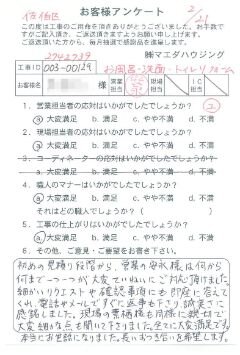 お客様アンケート
佐伯区
2/21
この度は工事のご用命を頂きありがとうございました。お手数で
すがご記入頂き、ご送附頂きますようお願い申し上げます。
ご返送頂いた方から、毎月抽選で感謝品を進呈します。
2942739
㈱マエダハウジング
工事ID 003-00129
お風呂・洗面・トイレリフォーム
お客様名 様 営業担当 現場担当 IC担当
1. 営業担当者の応対はいかがでしたでしょうか?
ⓐ大変満足 b. 満足 c. やや不満 d. 不満
2. 現場担当者の応対はいかがでしたでしょうか?
ⓐ大変満足 b. 満足 c. やや不満 d. 不満
3. コーディネーターの応対はいかがでしたでしょうか?
a. 大変満足 b. 満足 c. やや不満 d. 不満
4. 職人のマナーはいかがでしたでしょうか?
ⓐ大変満足 b. 満足 c. やや不満 d. 不満
それはどの職人でしょうか?( )
5. 工事の仕上がりはいかがでしたでしょうか?
ⓐ大変満足 b. 満足 c. やや不満 d. 不満
6. その他、ご意見・ご要望をお書き下さい。
初めの見積り段階から、営業の 様は何から
何まで一つ一つが大変ていねいにご対応頂けました。
細かいリクエストや確認事項にも即座に答えて
くれ、電話やメールですぐに返事も下さり誠実さに
感銘しました。現場の 様も同様に親切で
大変細かな点も聞いて下さりました。全てに大変満足です。
本当にお世話になりました。長いおつき合いを希望します。